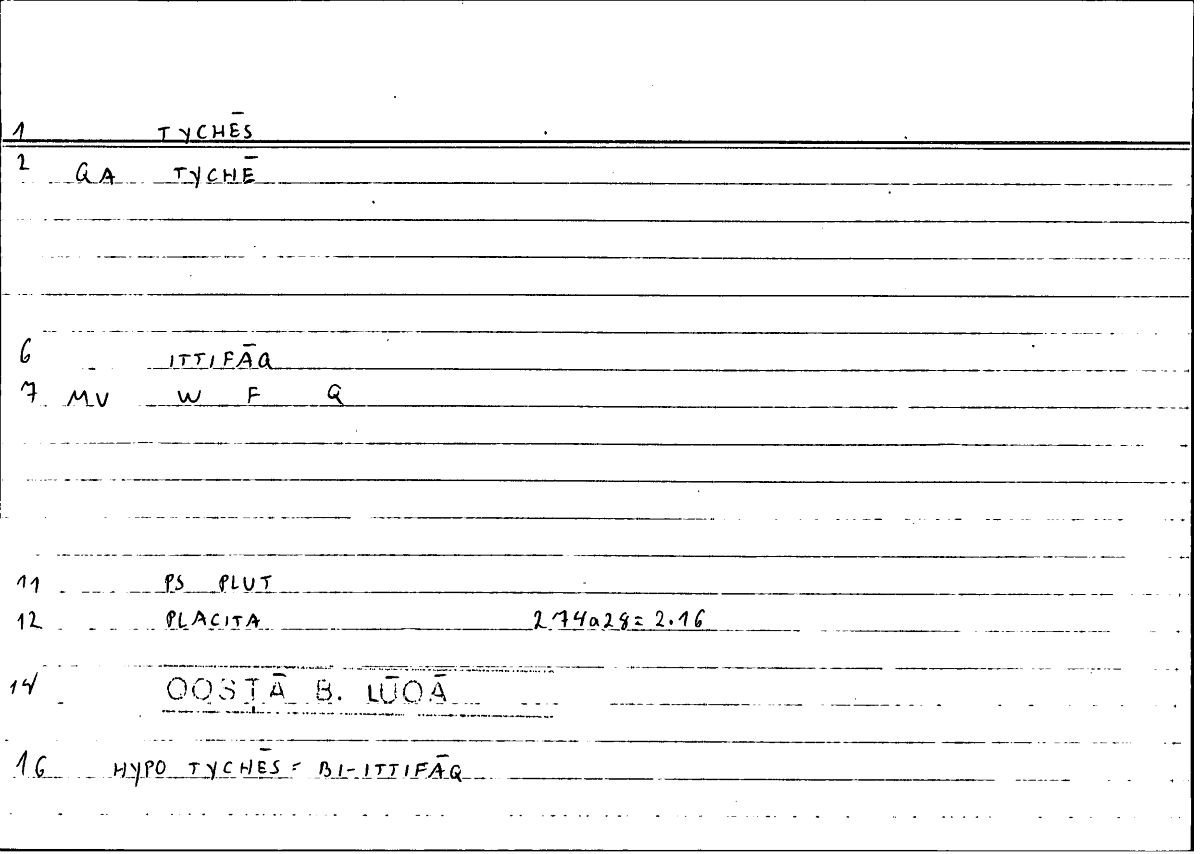 1 TYCHĒS
2 QA TYCHĒ
6 ITTIFĀQ
7 MV W F Q
11 PS PLUT
12 PLACITA 274a28=2.16
14 QOSṬĀ B. LŪQĀ
16 HYPO TYCHĒS = BI-ITTIFĀQ